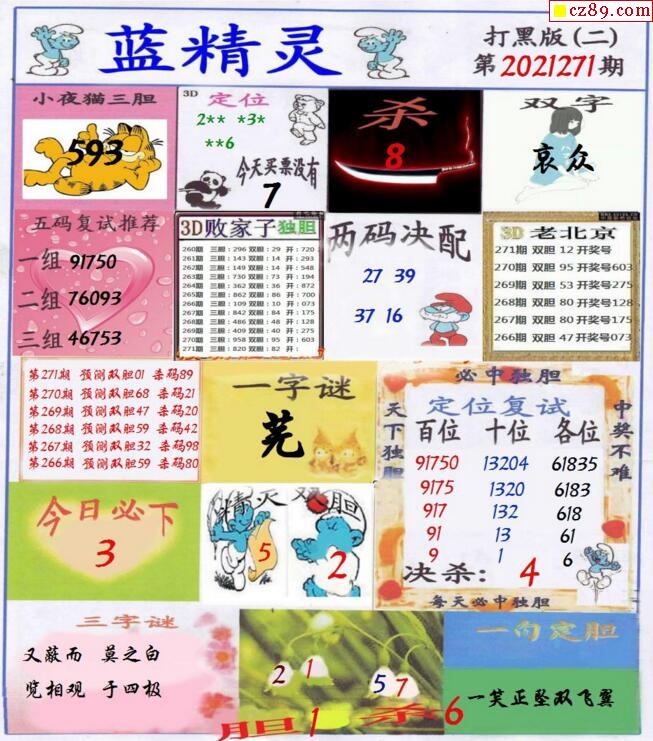 cz89.com
蓝精灵
打黑版(二)
第2021271期
小夜猫三胆
593
3D 定位
2** *3*
**6
今天买票没有
7
杀
8
双字
哀众
五码复试推荐
一组 91750
二组 76093
三组 46753
3D败家子独胆
260期 三胆:296 双胆:29 开:720
261期 三胆:143 双胆:14 开:293
262期 三胆:149 双胆:14 开:548
263期 三胆:730 双胆:73 开:194
264期 三胆:362 双胆:36 开:872
265期 三胆:862 双胆:86 开:700
266期 三胆:109 双胆:10 开:073
267期 三胆:842 双胆:84 开:175
268期 三胆:486 双胆:48 开:128
269期 三胆:409 双胆:40 开:275
270期 三胆:958 双胆:95 开:603
271期 三胆:820 双胆:82 开:
两码决配
27 39
37 16
3D 老北京
271期 双胆 12 开奖号
270期 双胆 95 开奖号603
269期 双胆 53 开奖号275
268期 双胆 80 开奖号128
267期 双胆 80 开奖号175
266期 双胆 47 开奖号073
第271期 预测双胆01 杀码89
第270期 预测双胆68 杀码21
第269期 预测双胆47 杀码20
第268期 预测双胆59 杀码42
第267期 预测双胆32 杀码98
第266期 预测双胆59 杀码80
一字谜
芜
必中独胆
天下独胆
中奖不难
定位复试
百位 十位 各位
91750 13204 61835
9175 1320 6183
917 132 618
91 13 61
9 1 6
决杀: 4
每天必中独胆
今日必下
3
精灵双胆
5
2
三字谜
又敲而 莫之白
览相观 于四极
2 1
5 7
胆1 杀6
一句定胆
一笑正坠双飞翼